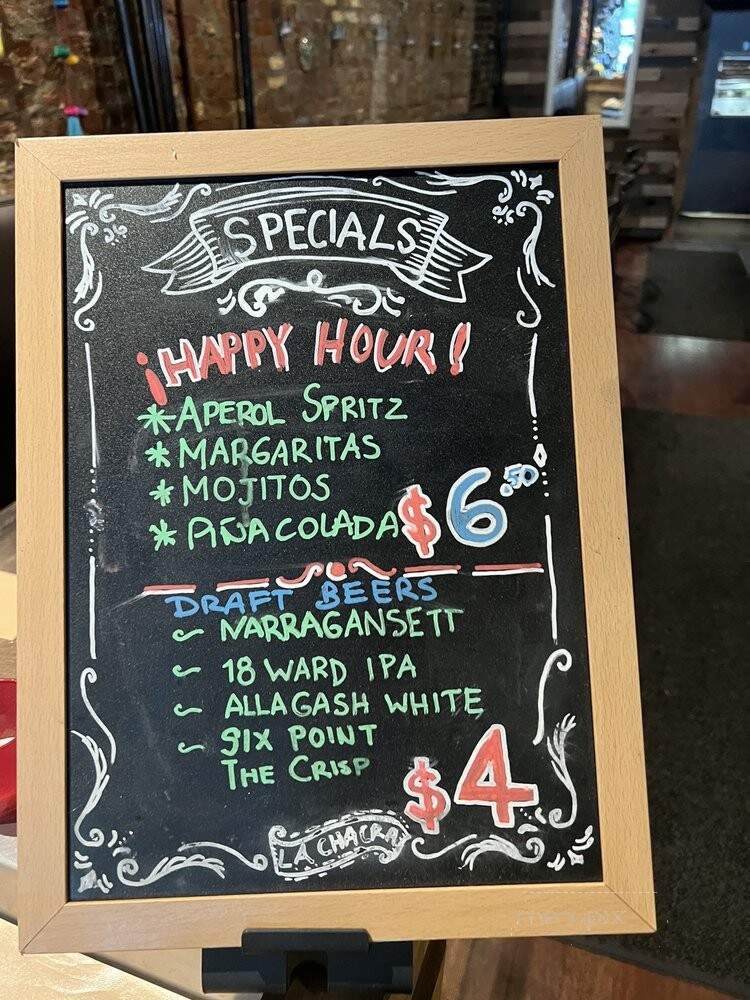 SPECIALS
¡HAPPY HOUR!
* APEROL SPRITZ
* MARGARITAS
* MOJITOS
* PIÑA COLADA $6.50
DRAFT BEERS
~ NARRAGANSETT
~ 18 WARD IPA
~ ALLAGASH WHITE
~ SIX POINT
THE CRISP
$4
LA CHACRA